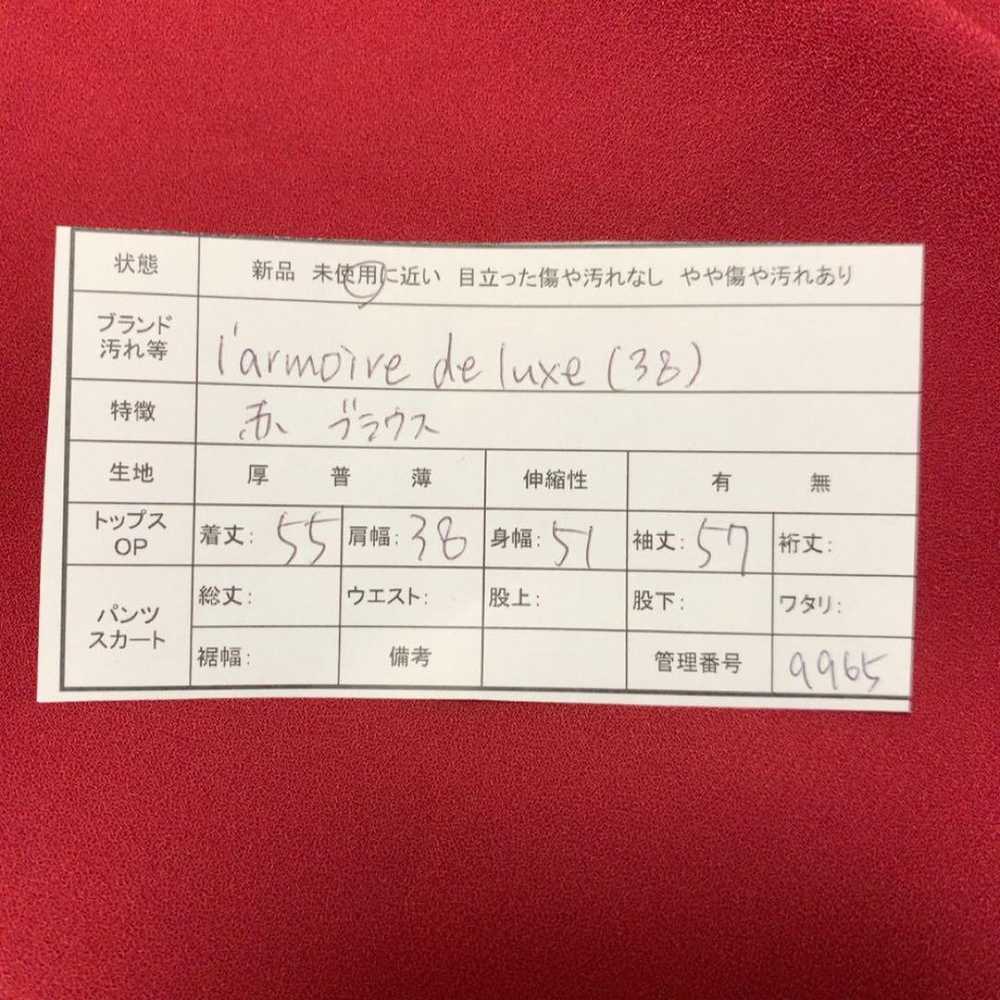 状態 新品 未使用に近い 目立った傷や汚れなし やや傷や汚れあり
ブランド
汚れ等 l'armoire de luxe (38)
特徴 赤 ブラウス
生地 厚 普 薄 伸縮性 有 無
トップス
OP 着丈: 55 肩幅: 38 身幅: 51 袖丈: 57 裄丈:
パンツ
スカート 総丈: ウエスト: 股上: 股下: ワタリ:
裾幅: 備考 管理番号 9965